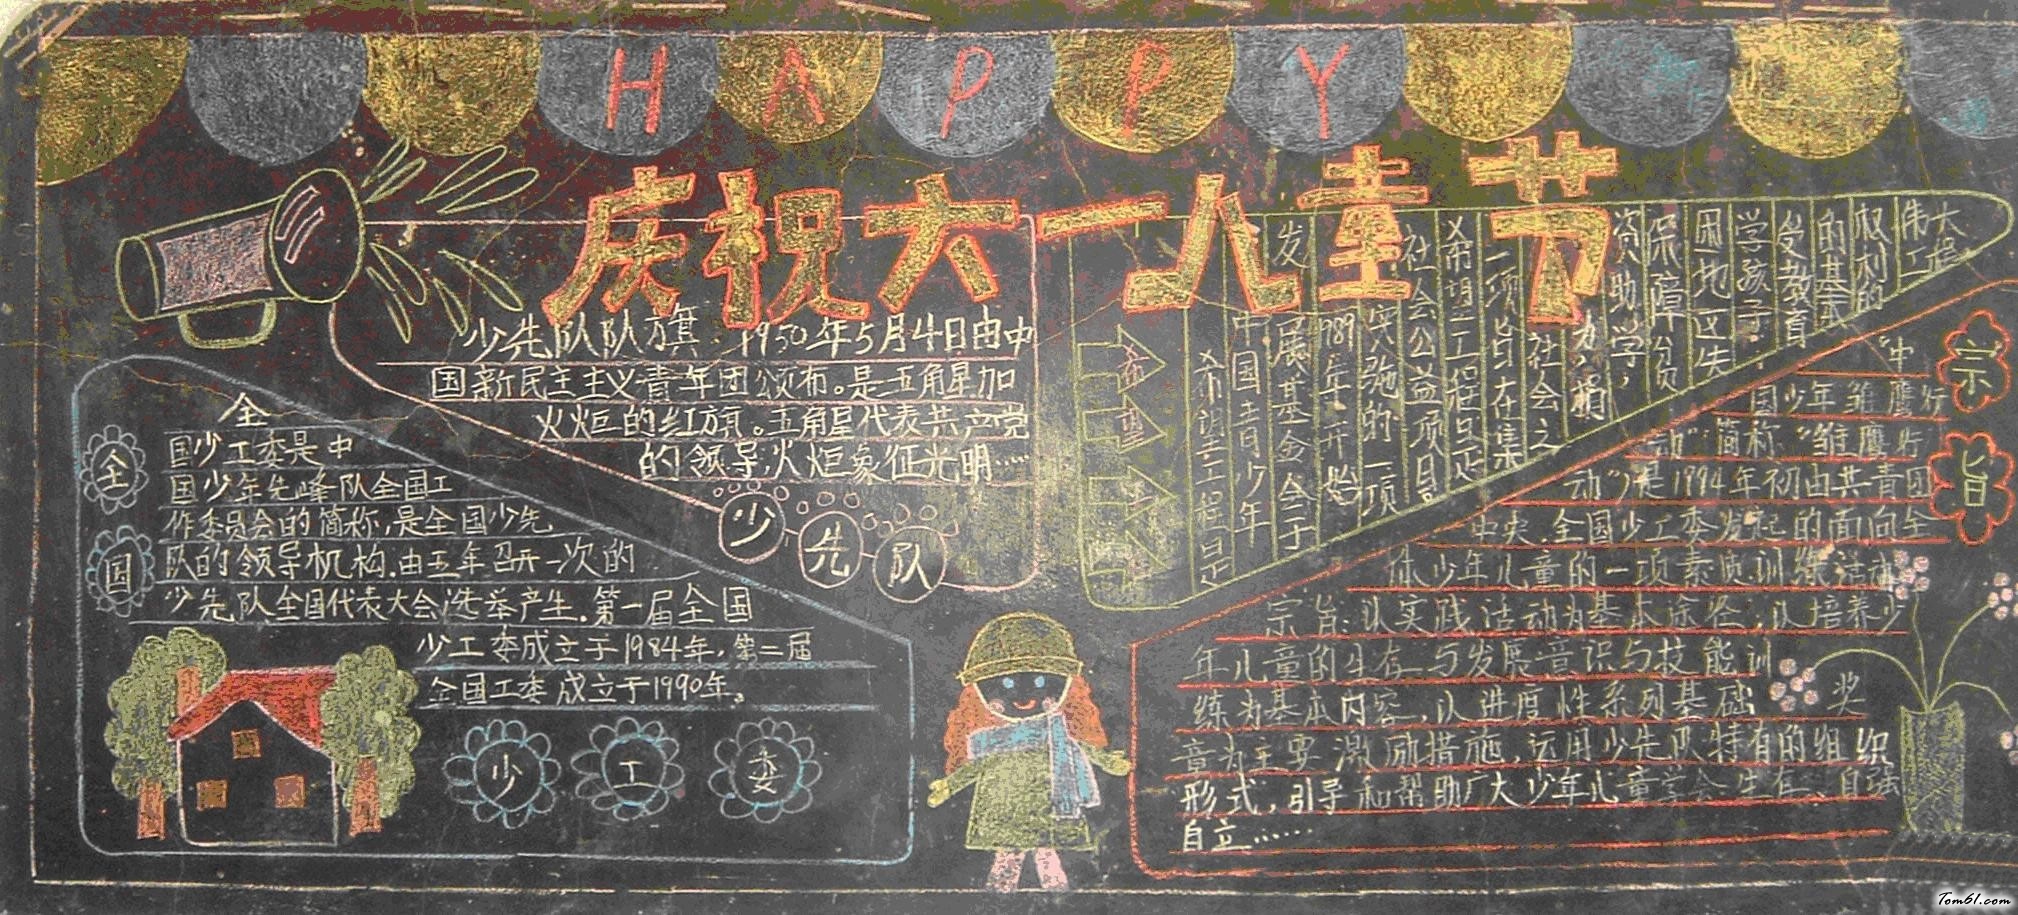 HAPPY
庆祝六一儿童节
少先队队旗:1950年5月4日由中
国新民主主义青年团颁布。是五角星加
火炬的红旗。五角星代表共产党
的领导,火炬象征光明……
少先队
全国
全
国少工委是中
国少年先峰队全国工
作委员会的简称,是全国少先
队的领导机构.由五年召开一次的
少先队全国代表大会选举产生.第一届全国
少工委成立于1984年,第二届
全国工委成立于1990年。
少工委
希望工程
希望工程是
中国青少年
发展基金会于
1989年开始
实施的一项
社会公益项目
希望工程旨
一项旨在集
社会之
力,捐
资助学,
保障贫
困地区失
学孩子
受教育
的基本
权利的
伟大
工程
宗旨
"中
国少年雏鹰行
动"简称"雏鹰行
动")是1994年初由共青团
中央.全国少工委发起的面向全
体少年儿童的一项素质训练活动
宗旨:以实践活动为基本途径,以培养少
年儿童的生存与发展意识与技能训
练为基本内容,以进度性系列基础 奖
章为主要激励措施,运用少先队特有的组织
形式,引导和帮助广大少年儿童学会生存、自强
自立……
Tom61.com